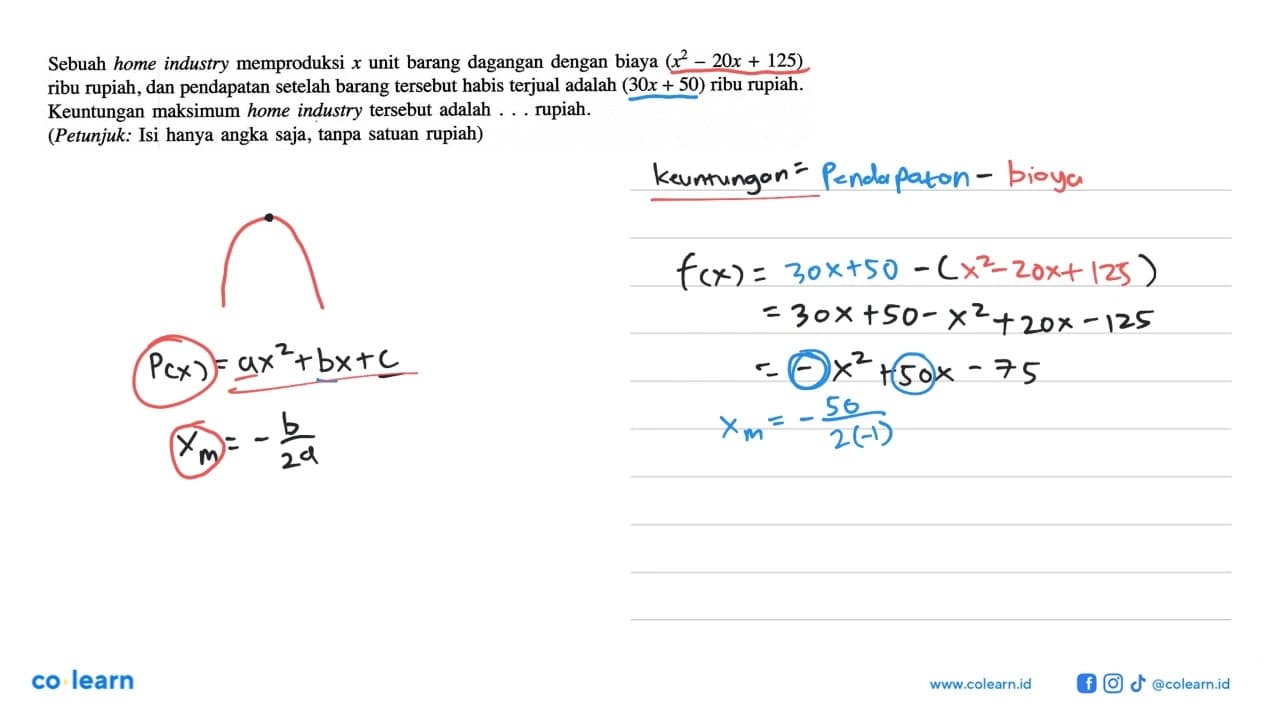 Sebuah home industry memproduksi x unit barang dagangan dengan biaya (x² – 20x + 125)
ribu rupiah, dan pendapatan setelah barang tersebut habis terjual adalah (30x + 50) ribu rupiah.
Keuntungan maksimum home industry tersebut adalah . . . rupiah.
(Petunjuk: Isi hanya angka saja, tanpa satuan rupiah)
Keuntungan = Pendapatan - biaya
f(x) = 30x+50 - (x²-20x+125)
= 30x+50-x²+20x-125
= -x²+50x-75
xm = - 50/2(-1)
P(x) = ax²+bx+c
xm = - b/2a
co learn
www.colearn.id
@colearn.id